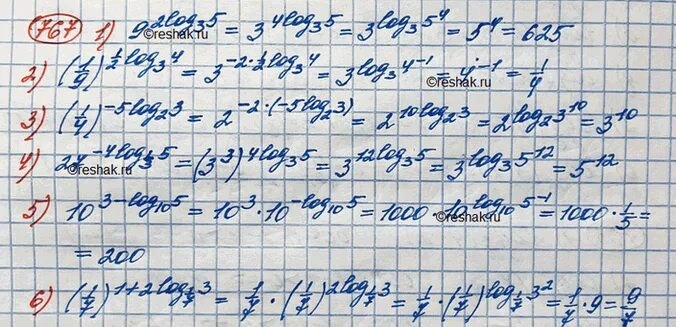 767 1) 9^(2log₃5) = 3^(4log₃5) = 3^(log₃5⁴) = 5⁴ = 625
©reshak.ru
2) (1/9)^(½log₃4) = 3^(-2·½log₃4) = 3^(log₃4⁻¹) = 4⁻¹ = 1/4
©reshak.ru
3) (1/4)^(-5log₂3) = 2^(-2·(-5log₂3)) = 2^(10log₂3) = 2^(log₂3¹⁰) = 3¹⁰
4) 27^(-4log_(1/3)5) = (3³)^(4log₃5) = 3^(12log₃5) = 3^(log₃5¹²) = 5¹²
©reshak.ru
5) 10^(3-log₁₀5) = 10³·10^(-log₁₀5) = 1000·10^(log₁₀5⁻¹) = 1000·1/5 =
©reshak.ru
= 200
6) (1/7)^(1+2log_(1/7)3) = 1/7·(1/7)^(2log_(1/7)3) = 1/7·(1/7)^(log_(1/7)3²) = 1/7·9 = 9/7